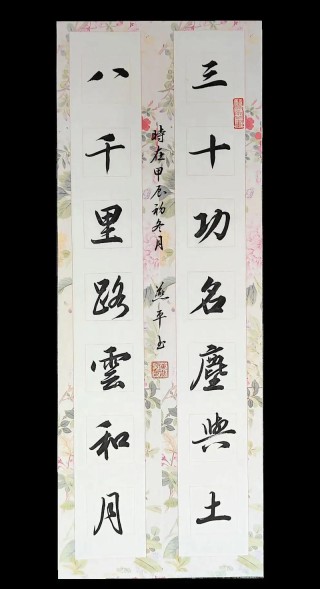 三十功名塵與土
八千里路雲和月
時在甲辰初冬月 燕平书